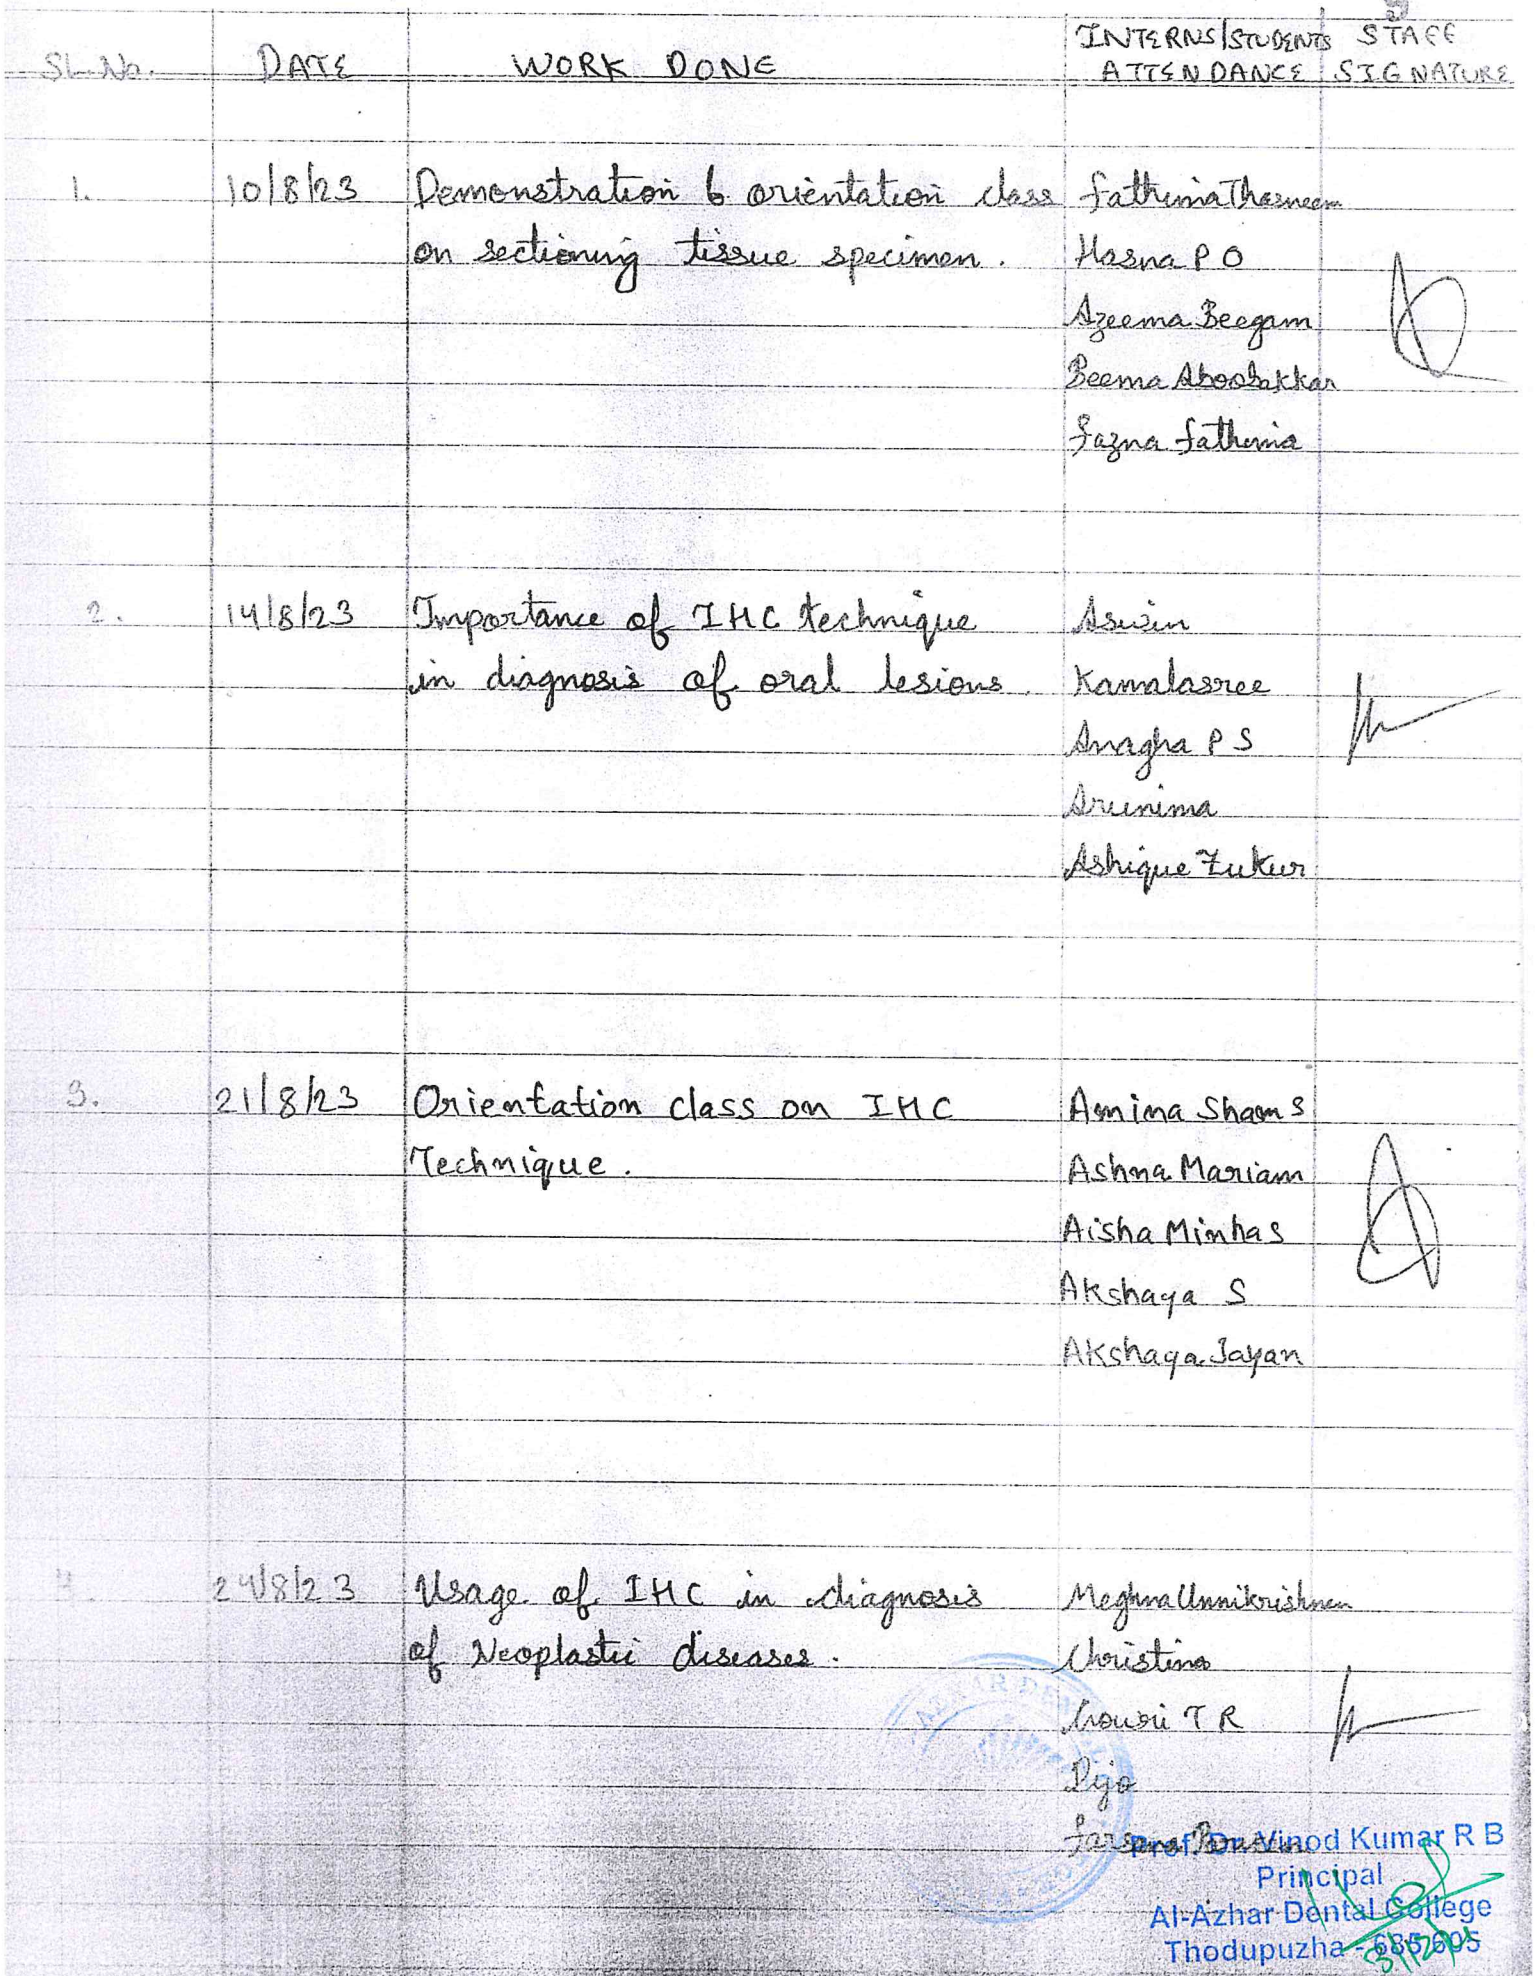 SL.No. DATE WORK DONE INTERNS/STUDENTS ATTENDANCE STAFF SIGNATURE
1. 10/8/23 Demonstration & orientation class Fathima Thasneem
on sectioning tissue specimen. Hasna P O
Azeema Beegam
Beema Aboobakkar
Fazna Fathima
2. 14/8/23 Importance of IHC technique Aswin
in diagnosis of oral lesions. Kamalasree
Anagha P S
Arunima
Ashique Zukur
3. 21/8/23 Orientation class on IHC Amina Sham S
Technique. Ashna Mariam
Aisha Minhas
Akshaya S
Akshaya Jayan
4. 24/8/23 Usage of IHC in diagnosis Meghna Unnikrishnan
of Neoplastic diseases. Christina
Gouri T R
Dijo
Prof. Dr. Vinod Kumar R B
Principal
Al-Azhar Dental College
Thodupuzha - 685 605